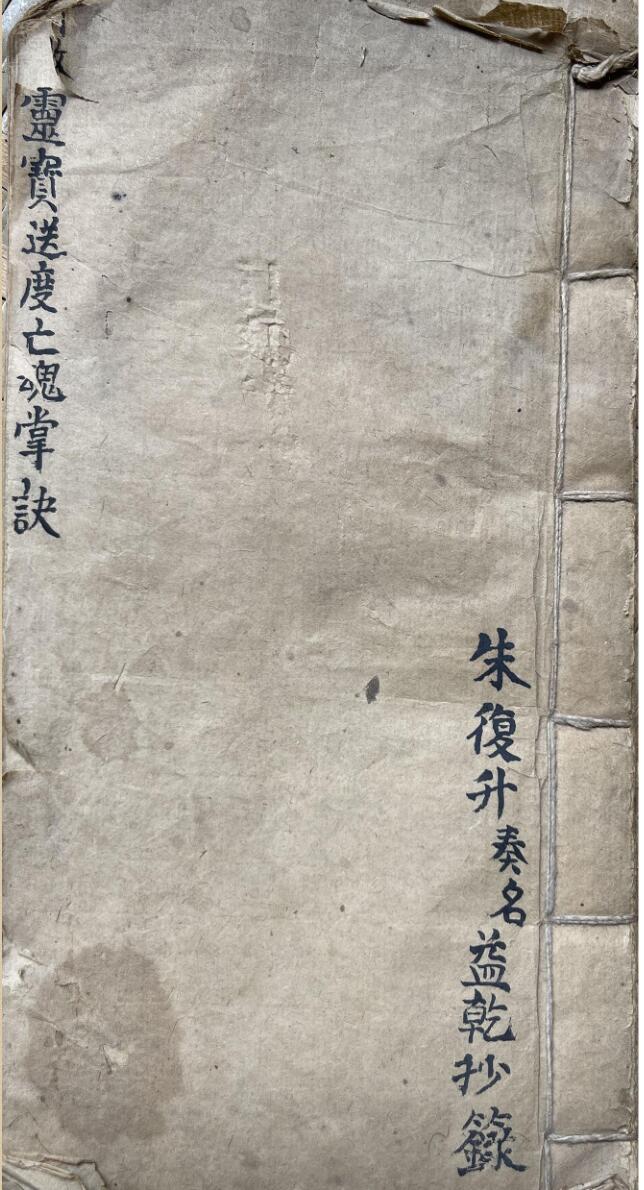 朱復升奏名益乾抄籙
靈寶送度亡魂掌訣